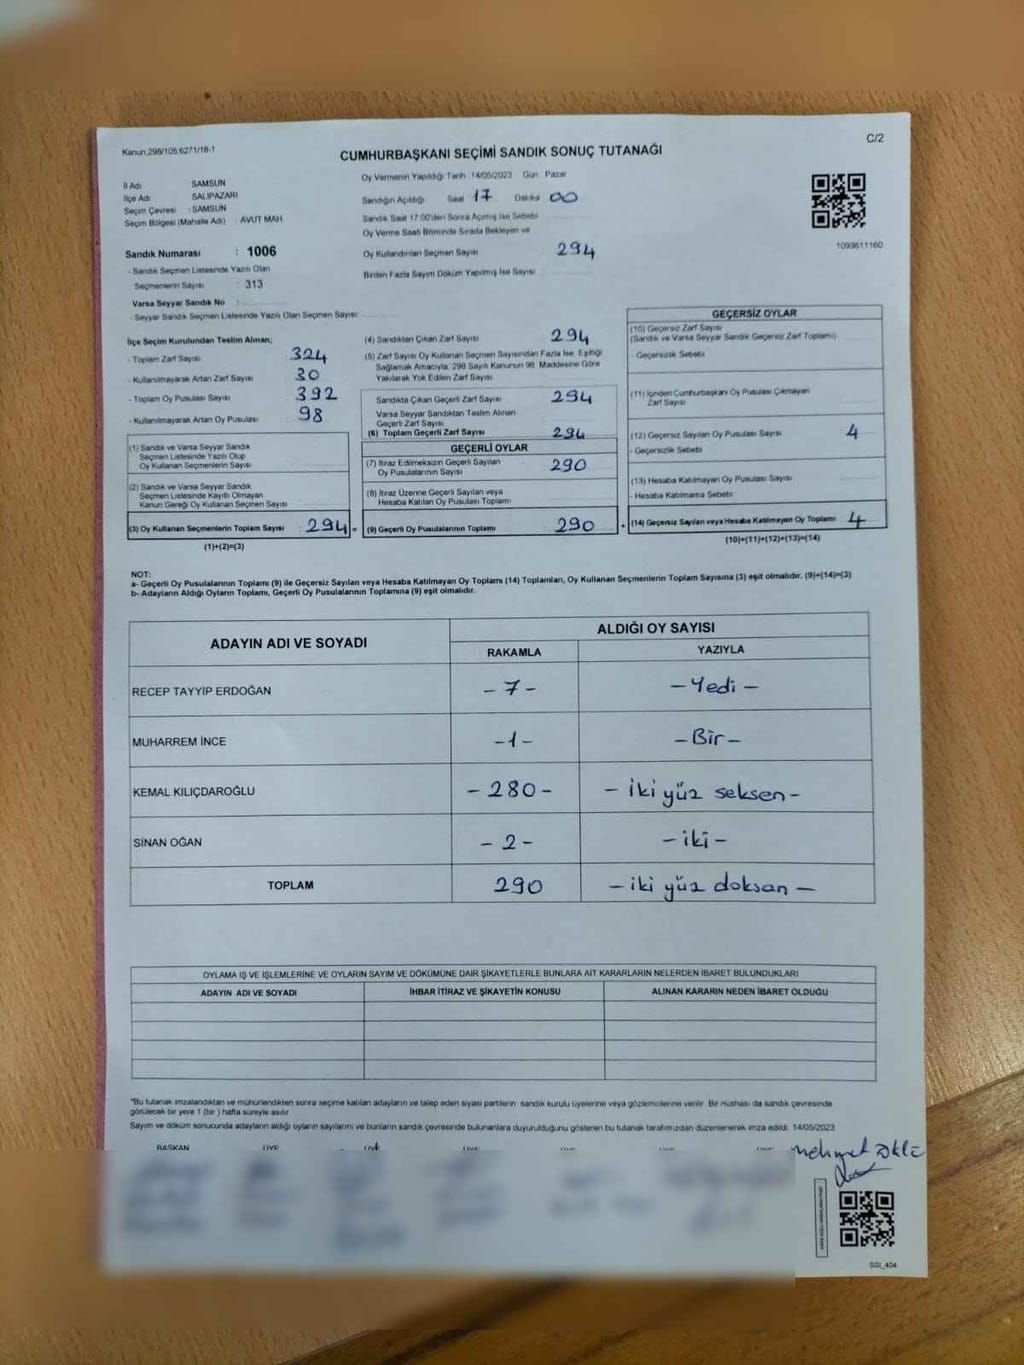 Kanun.298/105.6271/18-1
C/2
CUMHURBAŞKANI SEÇİMİ SANDIK SONUÇ TUTANAĞI
İl Adı SAMSUN
İlçe Adı SALIPAZARI
Seçim Çevresi : SAMSUN
Seçim Bölgesi (Mahalle Adı) : AVUT MAH
Sandık Numarası : 1006
- Sandık Seçmen Listesinde Yazılı Olan
Seçmenlerin Sayısı : 313
Varsa Seyyar Sandık No :
- Seyyar Sandık Seçmen Listesinde Yazılı Olan Seçmen Sayısı
Oy Vermenin Yapıldığı Tarih 14/05/2023 Gün Pazar
Sandığın Açıldığı Saat 17 Dakika 00
Sandık Saat 17:00'den Sonra Açılmış İse Sebebi
Oy Verme Saati Bitiminde Sırada Bekleyen ve
Oy Kullandırılan Seçmen Sayısı 294
Birden Fazla Sayım Döküm Yapılmış İse Sayısı
1093611160
İlçe Seçim Kurulundan Teslim Alınan;
- Toplam Zarf Sayısı 324
- Kullanılmayarak Artan Zarf Sayısı 30
- Toplam Oy Pusulası Sayısı 392
- Kullanılmayarak Artan Oy Pusulası 98
(1) Sandık ve Varsa Seyyar Sandık
Seçmen Listesinde Yazılı Olup
Oy Kullanan Seçmenlerin Sayısı
(2) Sandık ve Varsa Seyyar Sandık
Seçmen Listesinde Kayıtlı Olmayan
Kanun Gereği Oy Kullanan Seçmen Sayısı
(3) Oy Kullanan Seçmenlerin Toplam Sayısı 294 =
(1)+(2)=(3)
(4) Sandıktan Çıkan Zarf Sayısı 294
(5) Zarf Sayısı Oy Kullanan Seçmen Sayısından Fazla İse; Eşitliği
Sağlamak Amacıyla, 298 Sayılı Kanunun 98. Maddesine Göre
Yakılarak Yok Edilen Zarf Sayısı
Sandıkta Çıkan Geçerli Zarf Sayısı 294
Varsa Seyyar Sandıktan Teslim Alınan
Geçerli Zarf Sayısı
(6) Toplam Geçerli Zarf Sayısı 294
GEÇERLİ OYLAR
(7) İtiraz Edilmeksizin Geçerli Sayılan
Oy Pusulalarının Sayısı 290
(8) İtiraz Üzerine Geçerli Sayılan veya
Hesaba Katılan Oy Pusulası Toplamı
(9) Geçerli Oy Pusulalarının Toplamı 290 +
GEÇERSİZ OYLAR
(10) Geçersiz Zarf Sayısı
(Sandık ve Varsa Seyyar Sandık Geçersiz Zarf Toplamı)
- Geçersizlik Sebebi
(11) İçinden Cumhurbaşkanı Oy Pusulası Çıkmayan
Zarf Sayısı
(12) Geçersiz Sayılan Oy Pusulası Sayısı 4
- Geçersizlik Sebebi
(13) Hesaba Katılmayan Oy Pusulası Sayısı
- Hesaba Katılmama Sebebi
(14) Geçersiz Sayılan veya Hesaba Katılmayan Oy Toplamı 4
(10)+(11)+(12)+(13)=(14)
NOT:
a- Geçerli Oy Pusulalarının Toplamı (9) ile Geçersiz Sayılan veya Hesaba Katılmayan Oy Toplamı (14) Toplamları, Oy Kullanan Seçmenlerin Toplam Sayısına (3) eşit olmalıdır. (9)+(14)=(3)
b- Adayların Aldığı Oyların Toplamı, Geçerli Oy Pusulalarının Toplamına (9) eşit olmalıdır.
ADAYIN ADI VE SOYADI
ALDIĞI OY SAYISI
RAKAMLA YAZIYLA
RECEP TAYYİP ERDOĞAN - 7 - - Yedi -
MUHARREM İNCE -1- - Bir -
KEMAL KILIÇDAROĞLU - 280 - - iki yüz seksen -
SİNAN OĞAN - 2 - - iki -
TOPLAM 290 - iki yüz doksan -
OYLAMA İŞ VE İŞLEMLERİNE VE OYLARIN SAYIM VE DÖKÜMÜNE DAİR ŞİKAYETLERLE BUNLARA AİT KARARLARIN NELERDEN İBARET BULUNDUKLARI
ADAYIN ADI VE SOYADI İHBAR İTİRAZ VE ŞİKAYETİN KONUSU ALINAN KARARIN NEDEN İBARET OLDUĞU
"Bu tutanak imzalandıktan ve mühürlendikten sonra seçime katılan adayların ve talep eden siyasi partilerin sandık kurulu üyelerine veya gözlemcilerine verilir. Bir nüshası da sandık çevresinde
görülecek bir yere 1 (bir ) hafta süreyle asılır.
Sayım ve döküm sonucunda adayların aldığı oyların sayılarını ve bunların sandık çevresinde bulunanlara duyurulduğunu gösteren bu tutanak tarafımızdan düzenlenerek imza edildi. 14/05/2023
BAŞKAN ÜYE ÜYE ÜYE ÜYE ÜYE
Mehmet
SSI_404